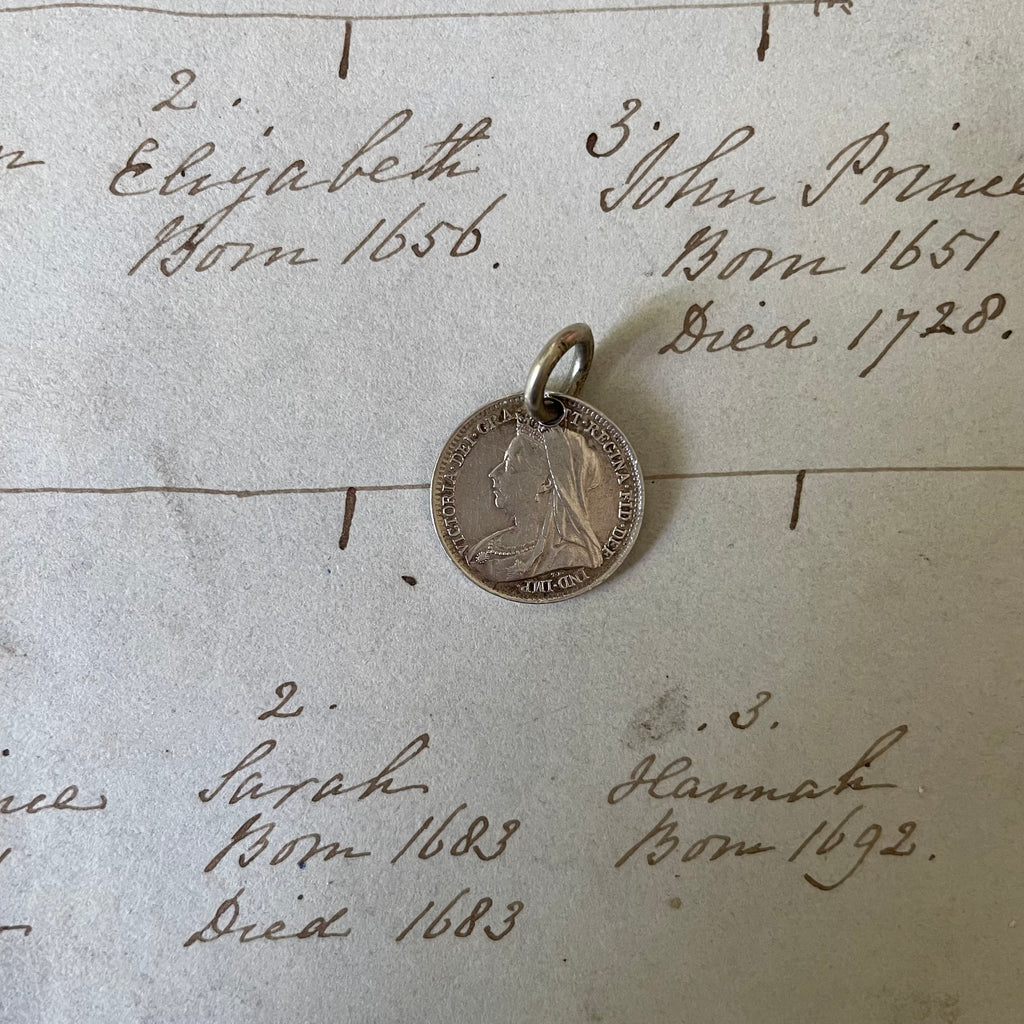 2.
Elizabeth
Born 1656.
3.
John Prince
Born 1651
Died 1728.
VICTORIA·DEI·GRA· ·REGINA·FID·DEF·IND·IMP·
2.
Sarah
Born 1683
Died 1683
3.
Hannah
Born 1692.